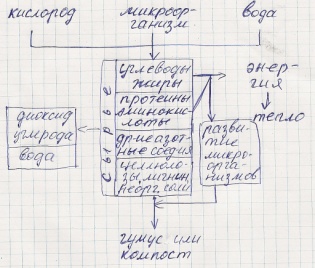 кислород
микроор-
ганизм
вода
сырье
углеводы
жиры
протеины
аминокис-
лоты
др-не азот-
ные соедия
целлюло-
зы, лигнин,
неорг. соли
энер-
гия
тепло
диоксид
углерода
вода
разви-
тие
микро-
орга-
низмов
гумус или
компост